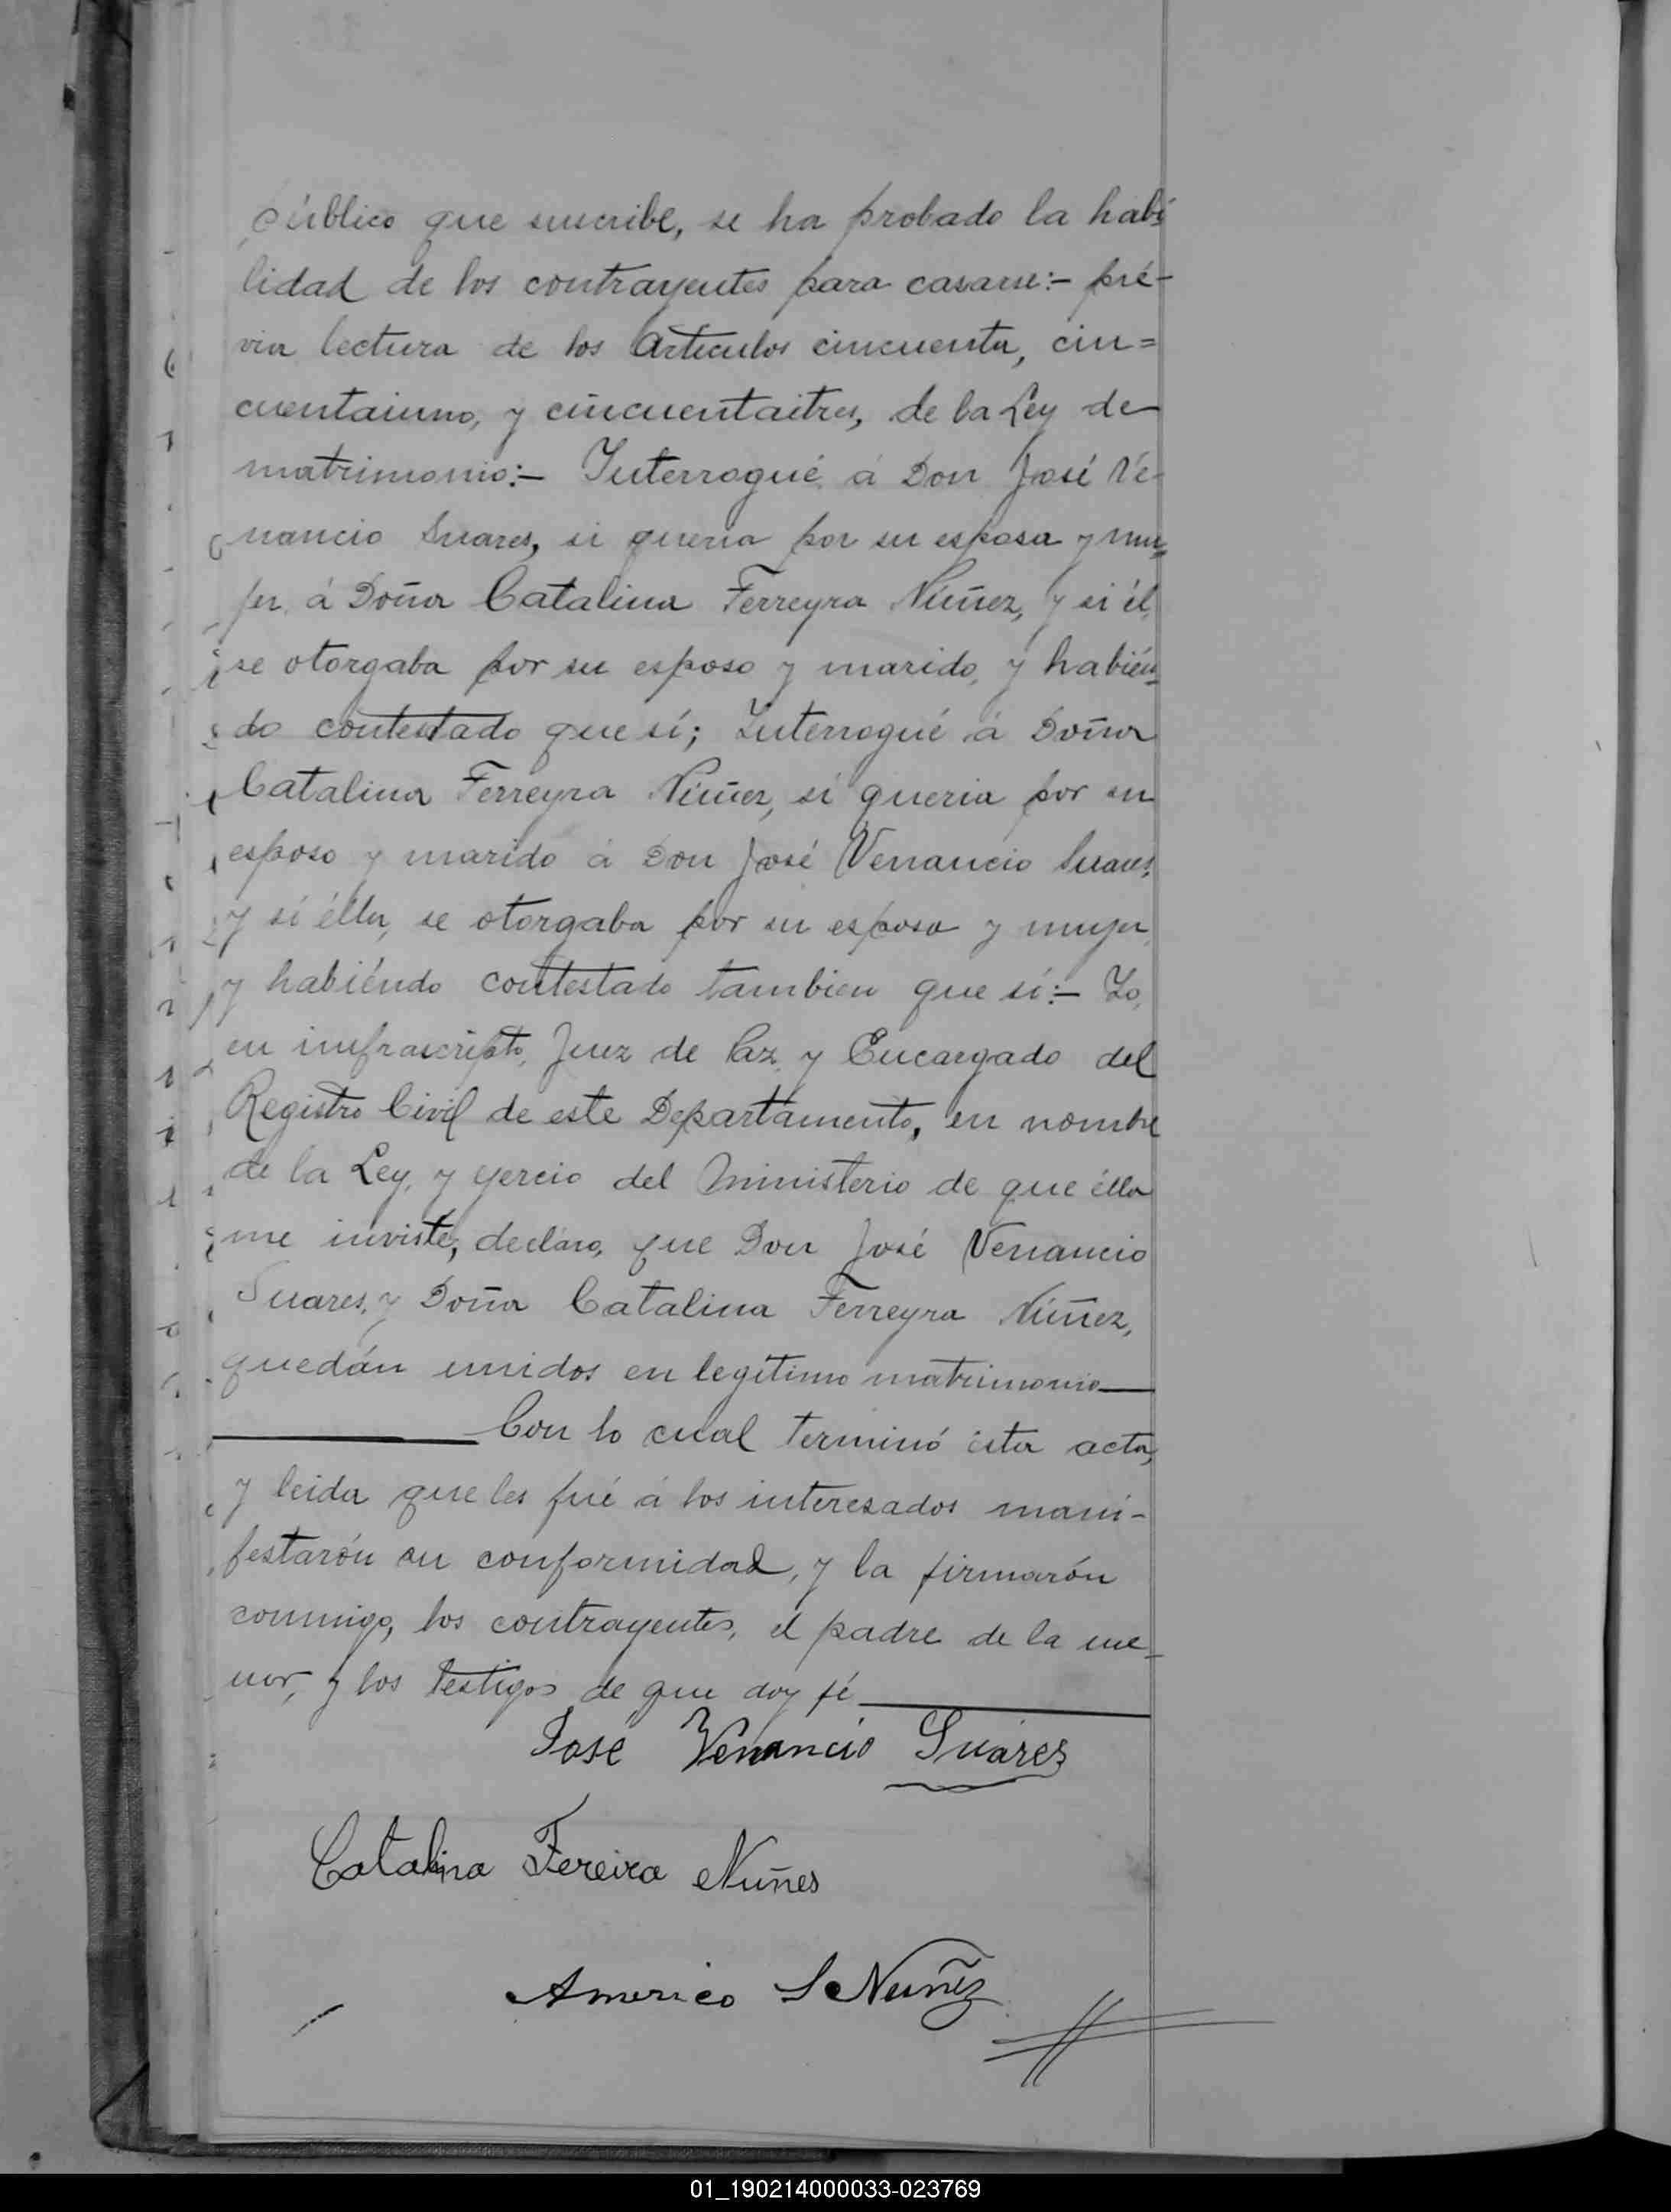 público que suscribe, se ha probado la habi
lidad de los contrayentes para casarse:- pré-
via lectura de los Artículos cincuenta, cin=
cuentaiuno, y cincuentaitres, de la Ley de
matrimonio:- Interrogué á Don José Ve-
nancio Suares, si queria por su esposa y mu=
jer, á Doña Catalina Ferreyra Núñez, y si él,
se otorgaba por su esposo y marido, y habién=
do contestado que sí; Interrogué á Doña
Catalina Ferreyra Núñez, si queria por su
esposo y marido á Don José Venancio Suares,
y si élla, se otorgaba por su esposa y mujer,
y habiéndo contestado tambien que sí:- Yo,
en infrascripto, Juez de Paz, y Encargado del
Registro Civil de este Departamento, en nombre
de la Ley, y ejercio del Ministerio de que élla
me inviste, decláro, que Don José Venancio
Suares, y Doña Catalina Ferreyra Núñez,
quedán unidos en legítimo matrimonio
Con lo cual terminó ésta acta,
y leida que les fué á los interesados mani-
festarón su conformidad, y la firmarón
conmigo, los contrayentes, el padre de la me-
nor, y los testigos de que doy fé
José Venancio Suárez
Catalina Fereira Nuñes
Americo S Nuñez
01_190214000033-023769